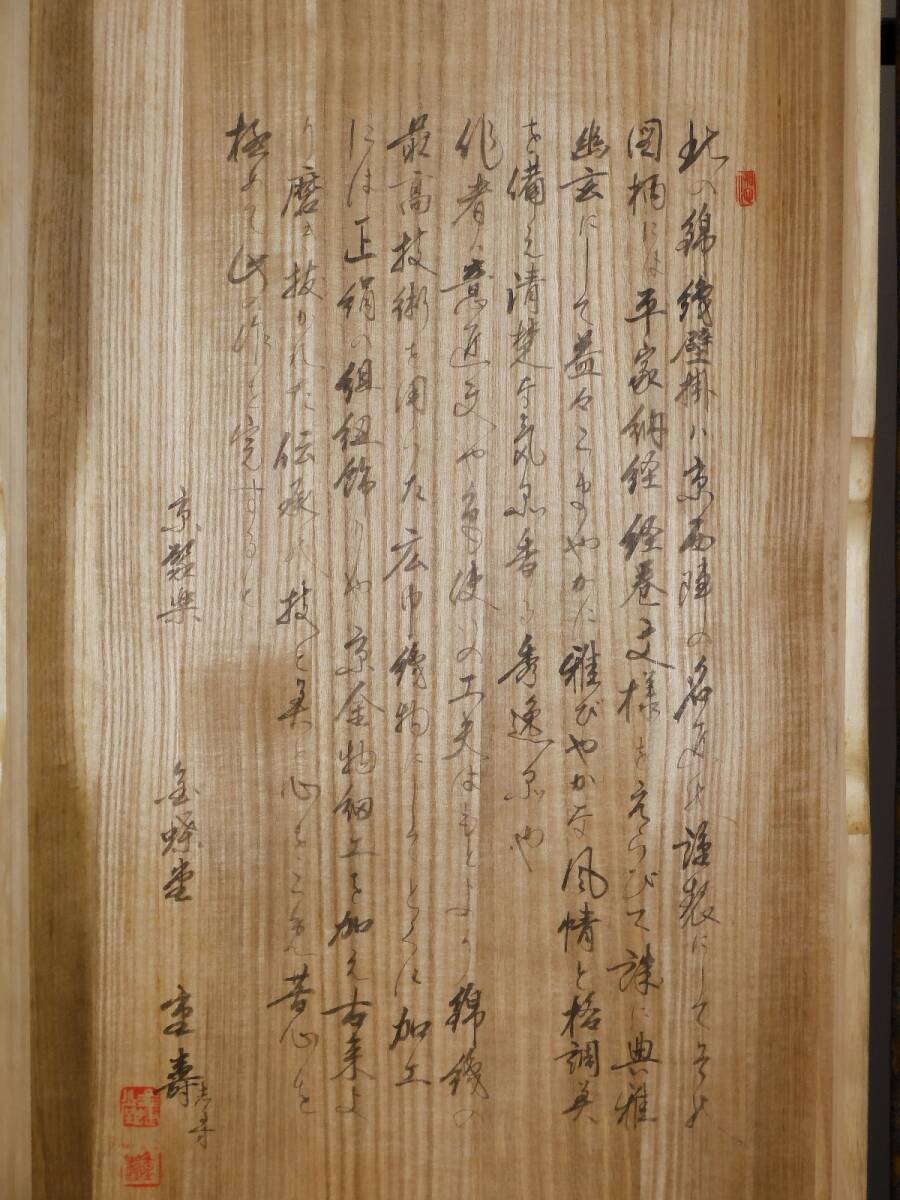 此の錦織壁掛は京西陣の名匠の謹製にしてその
図柄には平家納経経巻文様をえらびて誠に典雅
幽玄にして益々こまやかな雅びやかな風情と格調美
を備え清楚な気品香る秀逸品也
作者は意匠文や色使いの工夫はもとより錦織の
最高技術を用いた広巾織物にしてとくに加工
には正絹の組紐飾りや京金物細工を加え古来よ
り磨き抜かれた伝承の技と美と心をこめ苦心を
極めて此の作を完するなり
金蝶堂 重寿